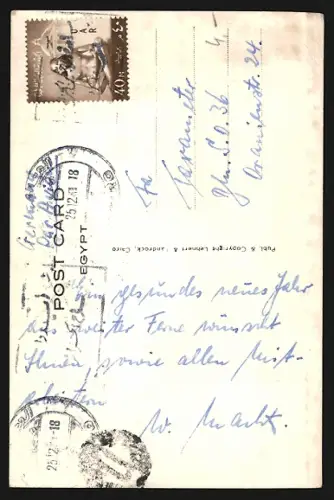 U A R
40 M
POST CARD
EGYPT
25.12.61.18
Germany
Fa
Parameter
Bln. S.O. 36
Oranienstr. 24.
Publ. & Copyright Lehnert & Landrock, Cairo
Ein gesundes neues Jahr
aus weiter Ferne wünscht
Ihnen, sowie allen Mit-
arbeitern
25.12.61.18